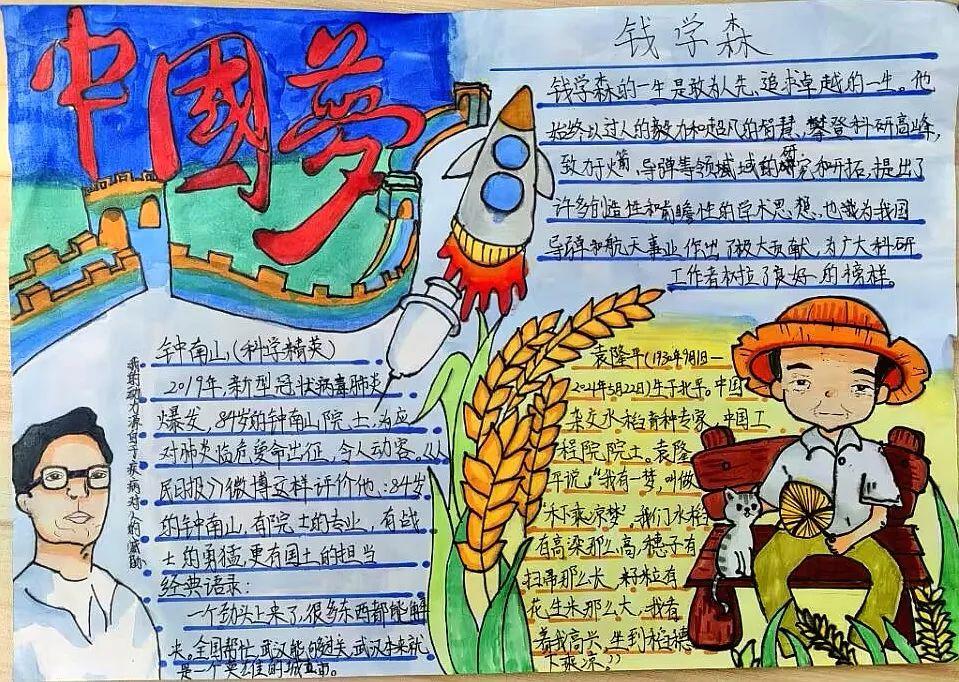 中國梦
钱学森
钱学森的一生是敢为人先、追求卓越的一生。他
始终以过人的毅力和超凡的智慧,攀登科研高峰,
致力于火箭、导弹等领域域的研究和开拓,提出了
许多创造性和前瞻性的学术思想,也就为我国
导弹和航天事业作出了极大贡献,为广大科研
工作者树立了良好的榜样。
钟南山(科学精英)
2019年,新型冠状病毒肺炎
爆发,84岁的钟南山院士,为应
对肺炎临危受命出征,令人动容。《人
民日报》微博这样评价他:84岁
的钟南山,有院士的专业,有战
士的勇猛,更有国士的担当
经典语录:
一个劲头上来了,很多东西都能解
决。全国帮忙,武汉能够过关,武汉本来就
是一个英雄的城市。
我的动力源自于疾病对人的威胁
袁隆平(1930年9月1日—
2021年5月22日)生于北平。中国
杂交水稻育种专家,中国工
程院院士。袁隆
平说:“我有一梦,叫做
“禾下乘凉梦”,我们水稻
有高粱那么高,穗子有
扫帚那么长,籽粒有
花生米那么大,我看
着我高兴,坐到稻穗
下乘凉。”